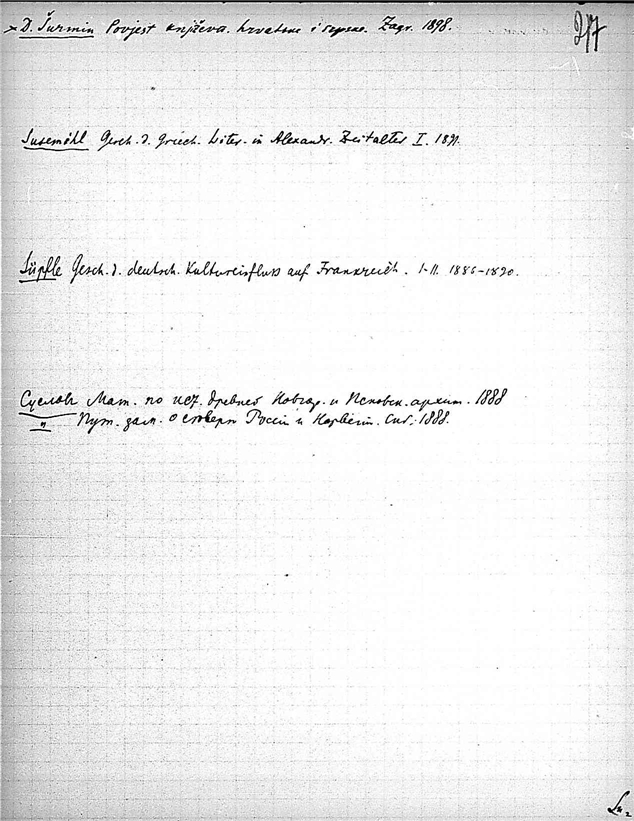 D. Šurmin Povjest književ. hrvatske i srpske. Zagr. 1898.
217
Susemihl Gesch. d. Griech. Liter. in Alexandr. Zeitalter I. 1891.
Süpfle Gesch. d. deutsch. Kultureinfluss auf Frankreich. I-II. 1886-1890.
Суслов Мат. по ист. древней Новгор. и Псковск. архит. 1888
" Пут. зам. о северѣ Россіи и Норвегіи. Спб. 1888.